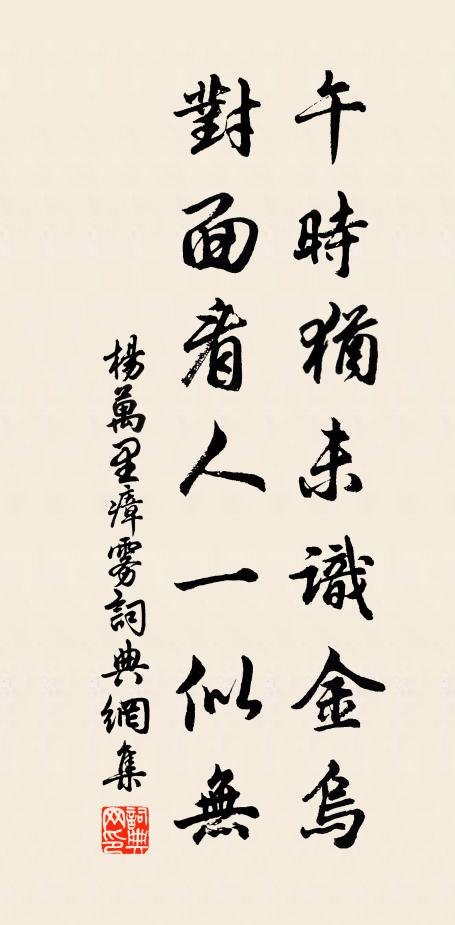 午時猶未識金烏
對面看人一似無
楊萬里瘴雾詞典網集
詞典网印